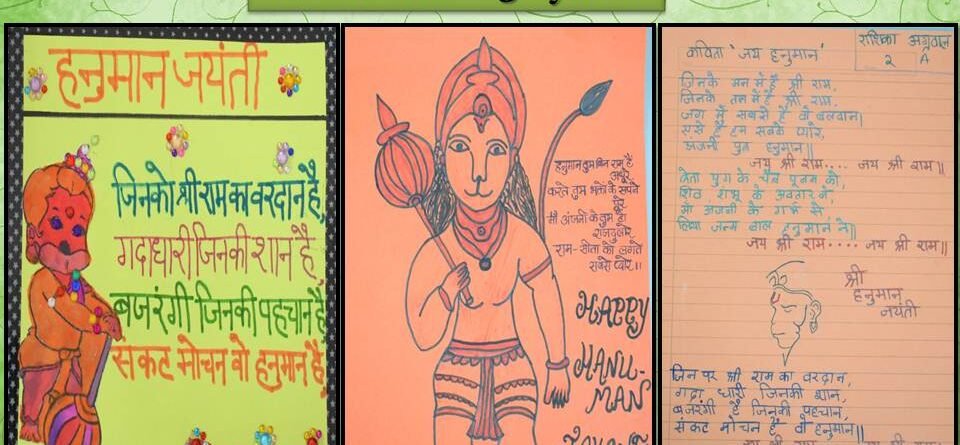 हनुमान जयंती
जिनको श्री राम का वरदान है,
गदाधारी जिनकी शान है,
बजरंगी जिनकी पहचान है
सकट मोचन वो हनुमान है
हनुमान तुम बिन राम है
अधूरे
करते तुम भक्तों के सपने
पूरे
माँ अंजनी के तुम हो
राजदुलारे
राम-सीता को लगते
सबसे प्यारे।।
HAPPY
HANU-
MAN
राशिका अग्रवाल
२ A
कविता 'जय हनुमान'
जिनके मन में है श्री राम,
जिनके तन में है श्री राम,
जग में सबसे है वो बलवान।
ऐसे है हम सबके प्यारे,
अंजनी पुत्र हनुमान॥
जय श्री राम.... जय श्री राम॥
त्रेता युग के चैत्र पूनम को,
शिव शंभू के अवतार ने,
माँ अंजनी के गर्भ से
लिया जन्म बाल हनुमान ने॥
जय श्री राम.... जय श्री राम॥
श्री
हनुमान
जयंती
जिन पर श्री राम का वरदान,
गदा धारी जिनकी शान,
बजरंगी है जिनकी पहचान,
संकट मोचन है वो हनुमान॥